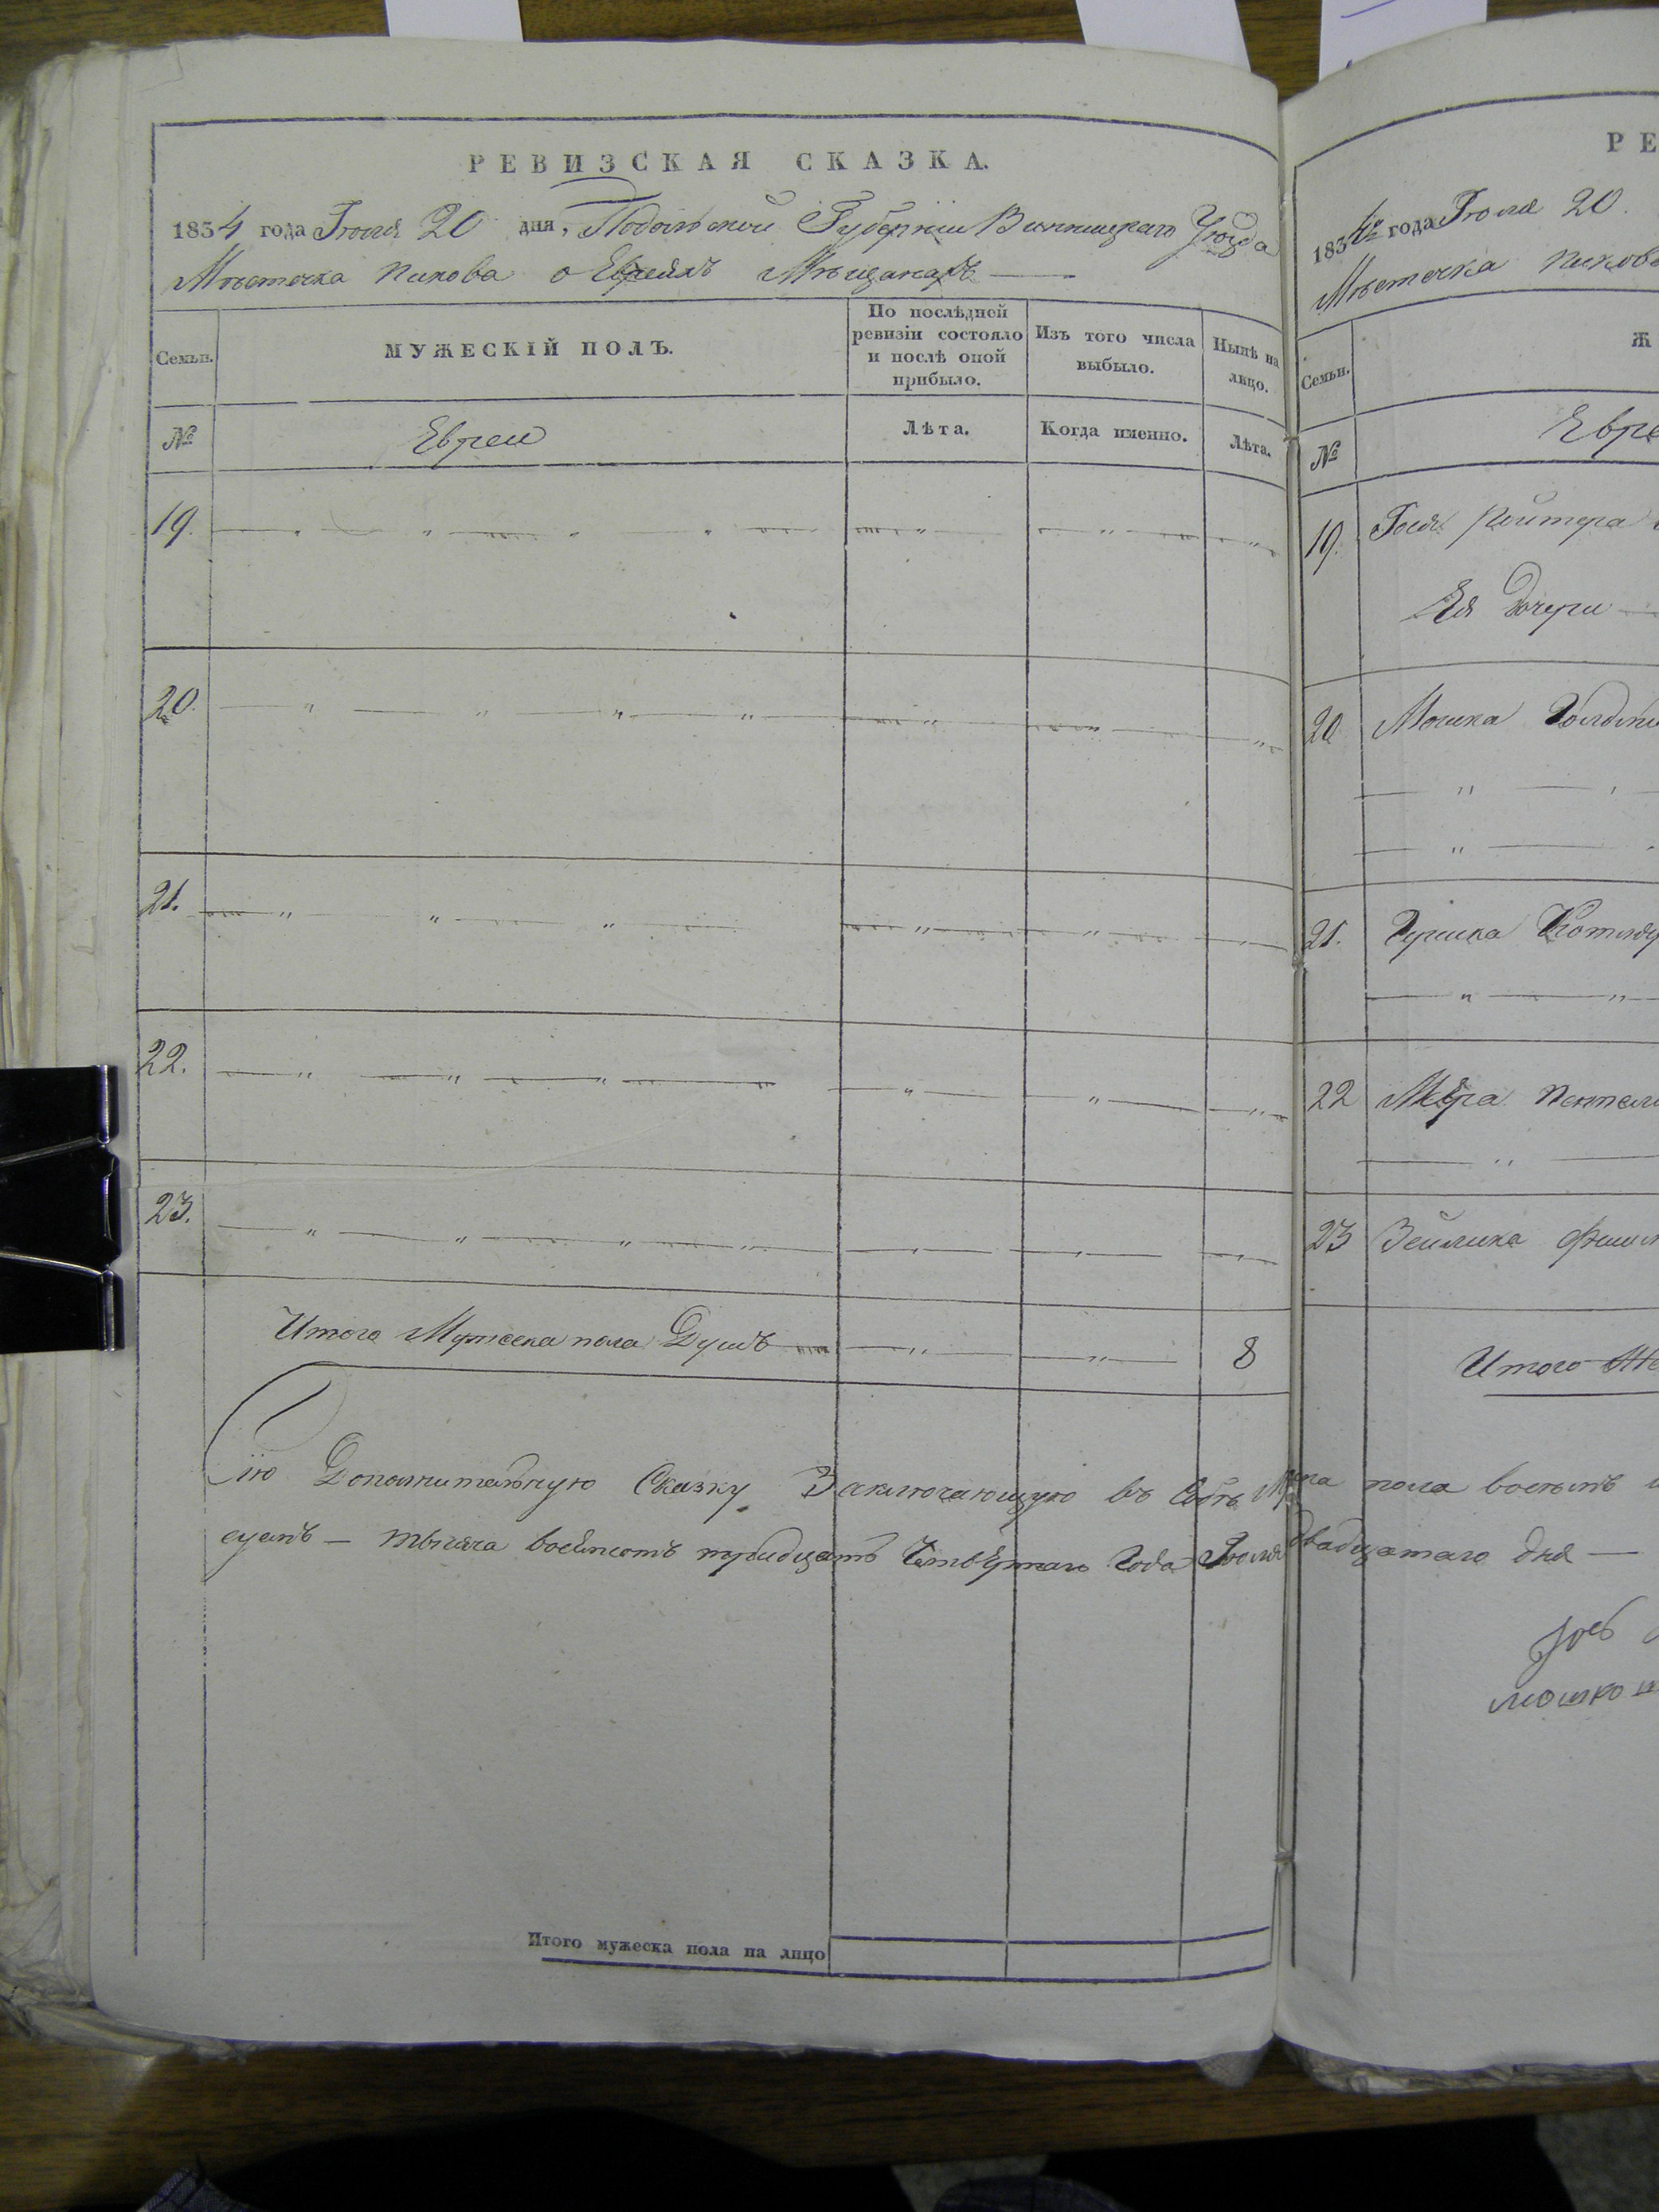 РЕВИЗСКАЯ СКАЗКА.
1834 года Іюля 20 дня, Подольской Губерніи Винницкаго Уѣзда
Мѣстечка Пикова о Евреяхъ Мѣщанахъ
Семьи.
МУЖЕСКІЙ ПОЛЪ.
По послѣдней
ревизіи состояло
и послѣ оной
прибыло.
Изъ того числа
выбыло.
Нынѣ на
лицо.
№
Евреи
Лѣта.
Когда именно.
Лѣта.
19.
20.
21.
22.
23.
Итого Мужеска пола Душъ 8
Сію Дополнительную Сказку Заключающую въ Себѣ пола восемь
тысяча восемсотъ тридцать Четвертаго Года Іюля двадцатаго дня —
Итого мужеска пола на лицо
РЕ
1834го года Іюля 20.
Мѣстечка Пиково
Ж
Семьи.
Евре
№
19.
Ея Дочери
20 Мошка
21. Гершка Котляр
22
23 Зейлика
Итого Же
мошко